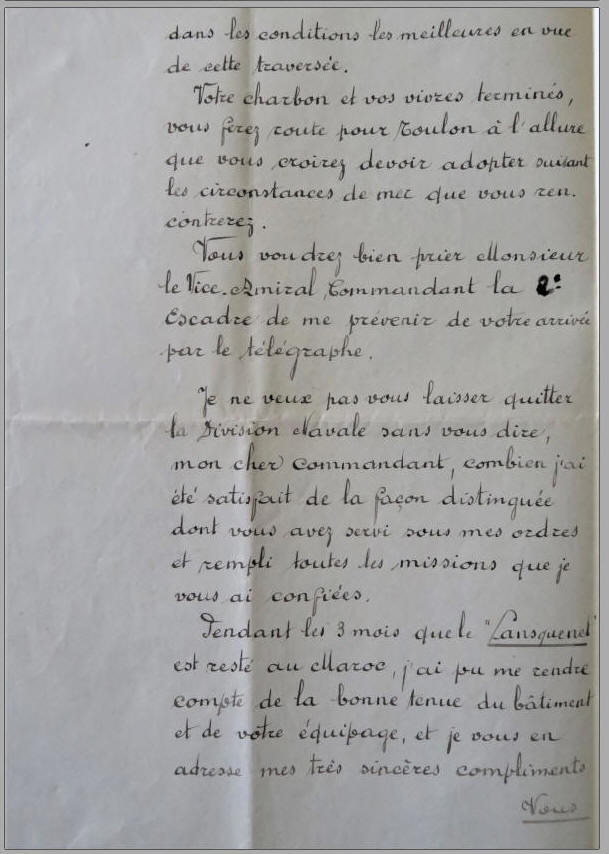 dans les conditions les meilleures en vue
de cette traversée.
Votre charbon et vos vivres terminés,
vous ferez route pour Toulon à l'allure
que vous croirez devoir adopter suivant
les circonstances de mer que vous ren.
contrerez.
Vous voudrez bien prier Monsieur
le Vice-Amiral Commandant la 2e
Escadre de me prévenir de votre arrivée
par le télégraphe.
Je ne veux pas vous laisser quitter
la Division Navale sans vous dire,
mon cher Commandant, combien j'ai
été satisfait de la façon distinguée
dont vous avez servi sous mes ordres
et rempli toutes les missions que je
vous ai confiées.
Pendant les 3 mois que le "Lansquenet"
est resté au Maroc, j'ai pu me rendre
compte de la bonne tenue du bâtiment
et de votre équipage, et je vous en
adresse mes très sincères compliments
Vous